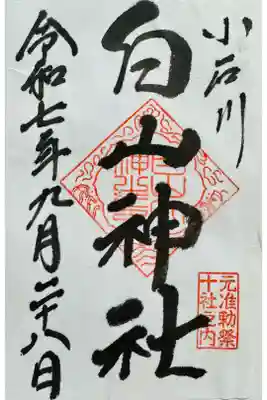 小石川
白山神社
令和七年九月二十八日
元准勅祭
十社之内